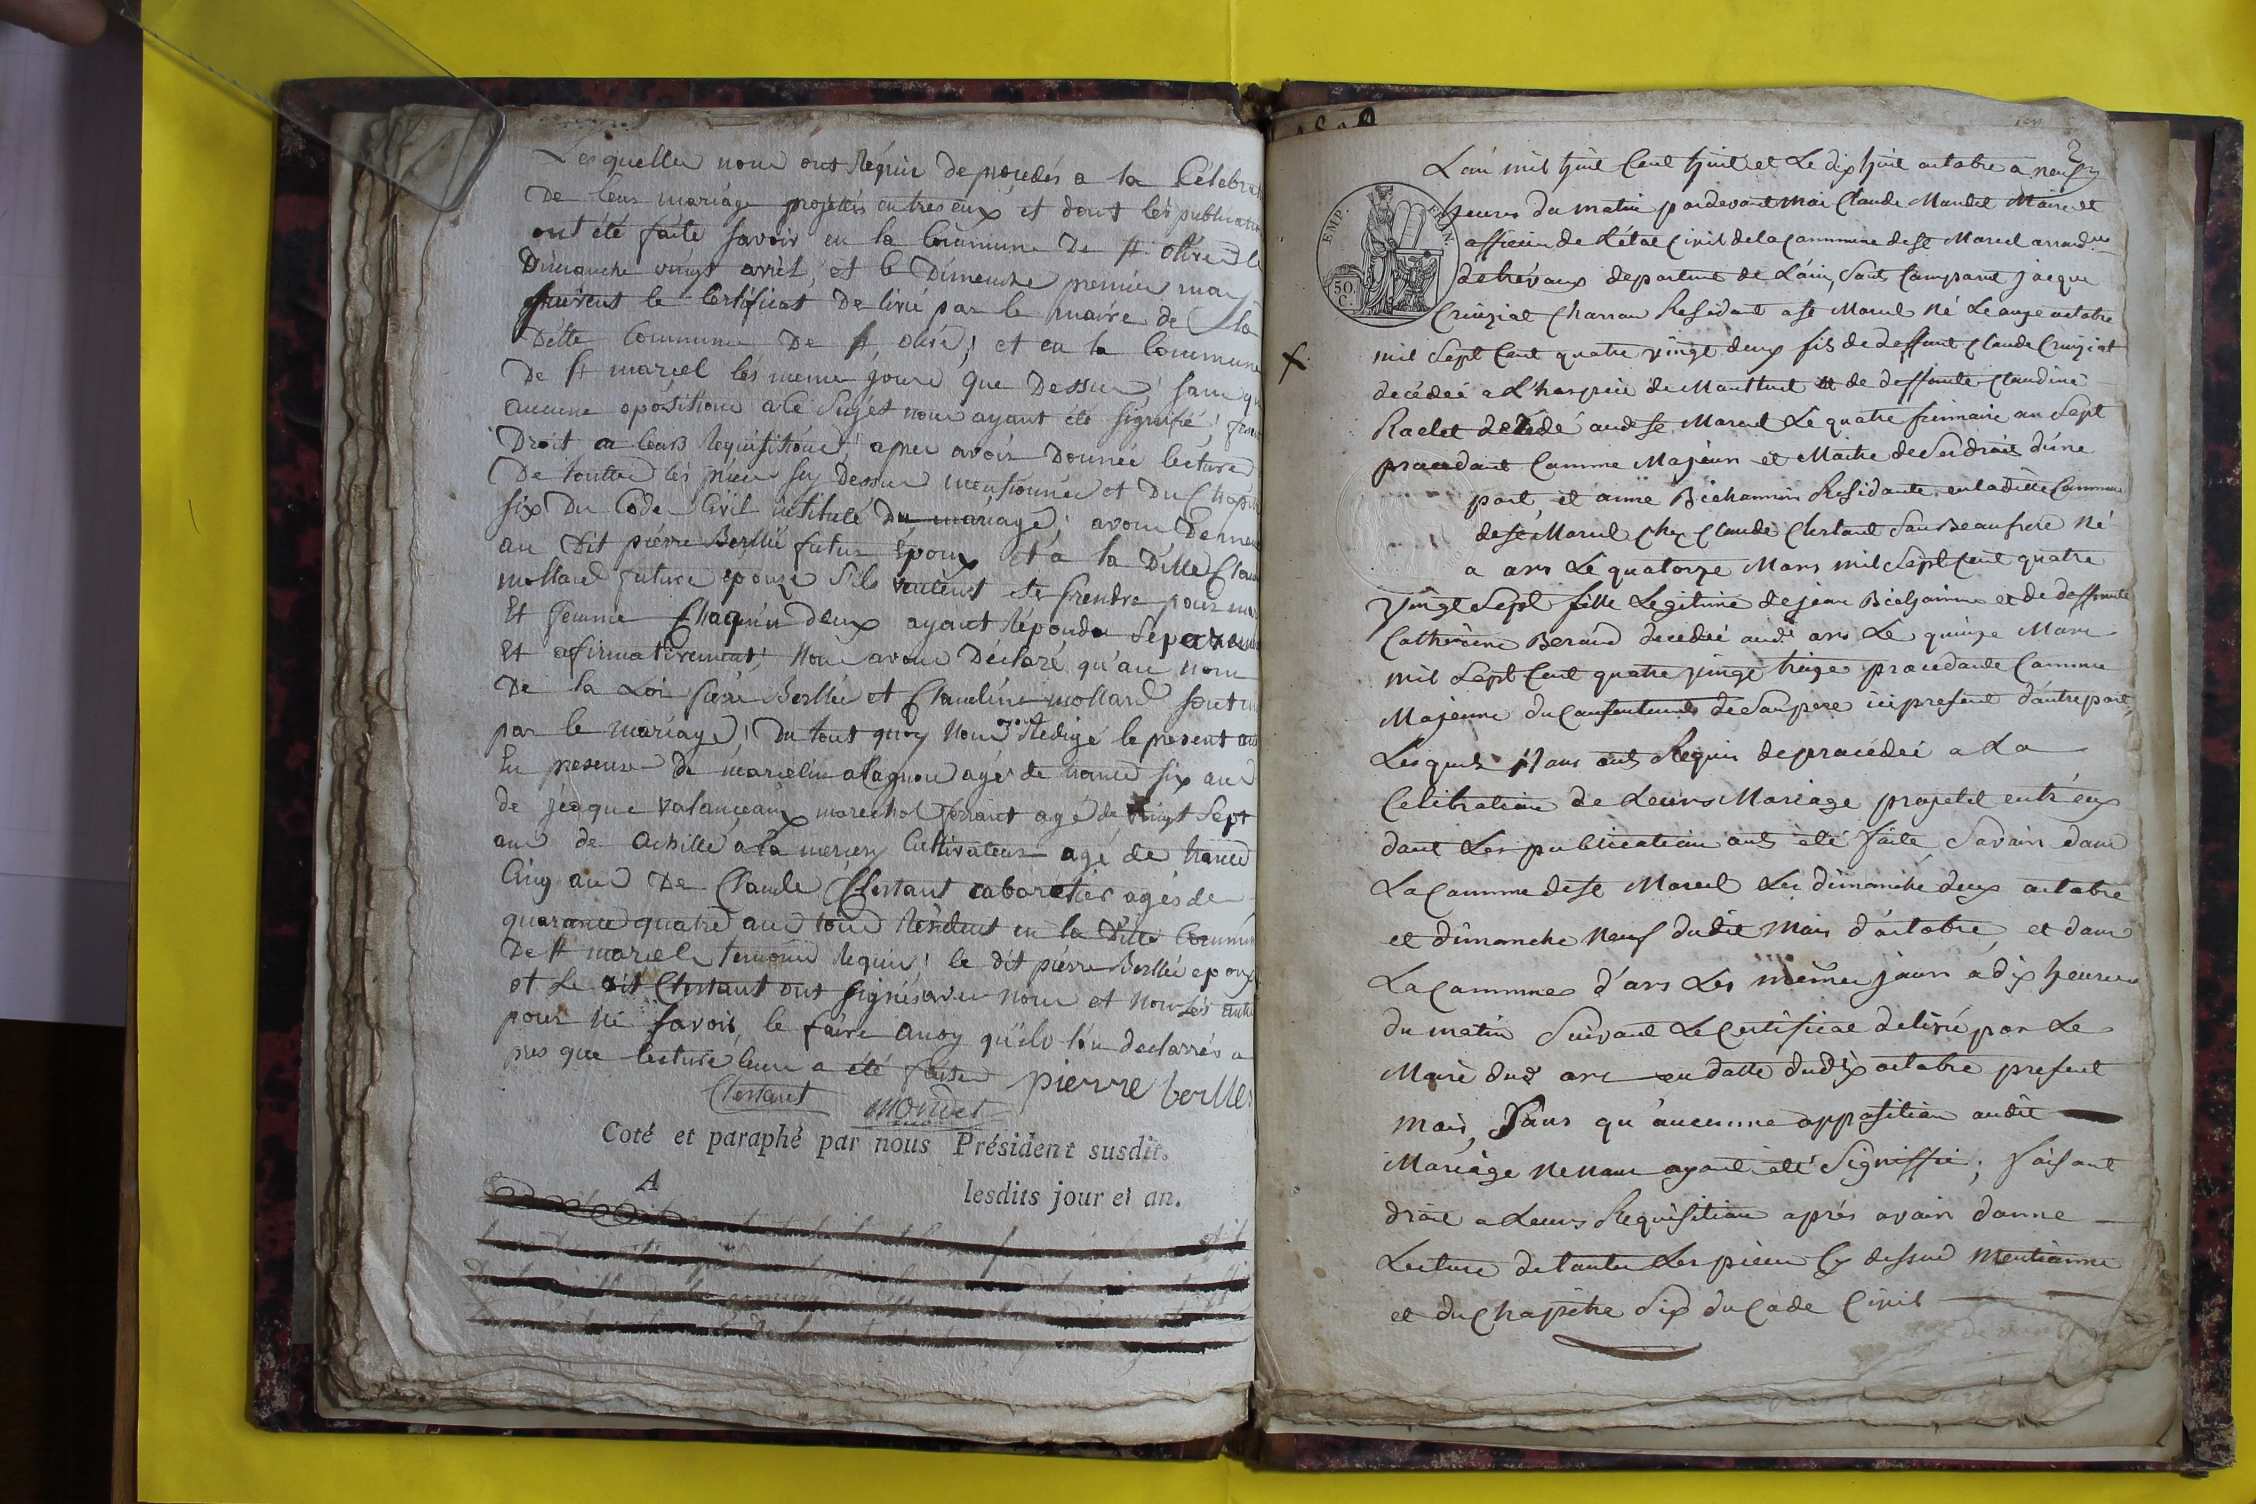 Lesquelles nous ont Réquis de procédés a la Célébrat
De leur mariage projettés entres eux et dont les publicatio
ont été faite savoir en la Commune De st olive le
Dimanche vingt avril, et le Dimenche premier mai
suivent le Certificat De livré par le maire de la
Ditte Commune De st olive; et en la Commune
De st marcel lés meme jours que Dessus, sans qu
aucune opósitions a Ce Sujet nous ayant été signifié; 
Droit a leurs Requisitions, apres avoir Donnée lecture
De toutte lés pieces sy Dessus mensionnée et Du Chapit
six Du Code Civil intitulé Du mariage, avons Deman
au Dit pierre Berllié futur Époux et a la Ditte Clau
mollard future epouze S'ils veulent se prendre pour ma
Et femme Chaqu'un deux ayant Répondu Séparem
Et afirmativement; Nous avons Déclaré qu'au nom
De la Loi pierre Berllié et Claudine mollard sont un
par le mariage; Du tout quoy Nous avons Rédigé le present acte
En presence De marcelin alagnon agé de trante six ans
De jacque valanceaux marechal ferrant agé de vingt Sept
ans de achille a la mercery Cultivateur agé de trante
Cinq ans De Claude Chertant cabaretier agés de
quarante quatre ans tous Résident en la Ditte Commun
De st marcel temoins Requis; le dit pierre Berllié epoux
et Le dit Chertant ont signés avec nous et Non Lés autre
pour Ne savoir le faire Ansy qu'ils l'on declarrés a
pres que lecture leur a été faite
Chertant Mondet pierre berllie
Coté et paraphé par nous Président susdit.
A lesdits jour et an.
L'an mil huit Cent huit et Le dix huit octobre a neuf
heures du matin pardevant moi Claude Mandet Maire et
officier de L'état Civil de la Commune de st Marcel arrond.
de trévoux departement de L'ain, Sont Comparut jacque
Cruiziat Charron Residant a st Marcel Né Le onze octobre
mil Sept Cent quatre vingt deux fils de deffunt Claude Cruiziat
decédéé a L'hospice de Montluel et de deffunte Claudine
Raclet décédé aud. st Marcel Le quatre frimaire an Sept
procedant Comme Majeur et Maitre de Ses droit d'une
part, et anne Béchamin Residante en ladite Commune
de st Marcel Chez Claude Chertant Son Beaufrere Né
a ars Le quatorze Mars mil Sept Cent quatre
Vingt Sept fille Legitime de jean Béchamin et de deffunte
Catherine Beraud decédéé aud. ars Le quinze Mars
mil Sept Cent quatre vingt treize procedante Comme
Majeure du Consentement de Son pere ici present d'autre part,
Lesquels Nous ont Requis de procédéé a La
Celebration de Leurs Mariage projetté entr'eux
dont Les publication ont été faite Savoir dans
La Commune de st Marcel Les dimanche deux octobre
et dimanche neuf dudit Mois d'octobre, et dans
La Commune d'ars Les même jours a dix heures
du matin Suivant Le Certificat delivré par Le
Maire dud. ars en datte du dix octobre present
mois, Sans qu'aucunne opposition audit
Mariage Ne Nous ayant été Signiffié; faisant
droit a Leurs Requisition aprés avoir donne
Lecture de toutes Les pieces Cy dessus Mentionné
et du Chapitre Six du Code Civil
EMP. FRAN.
50. C.